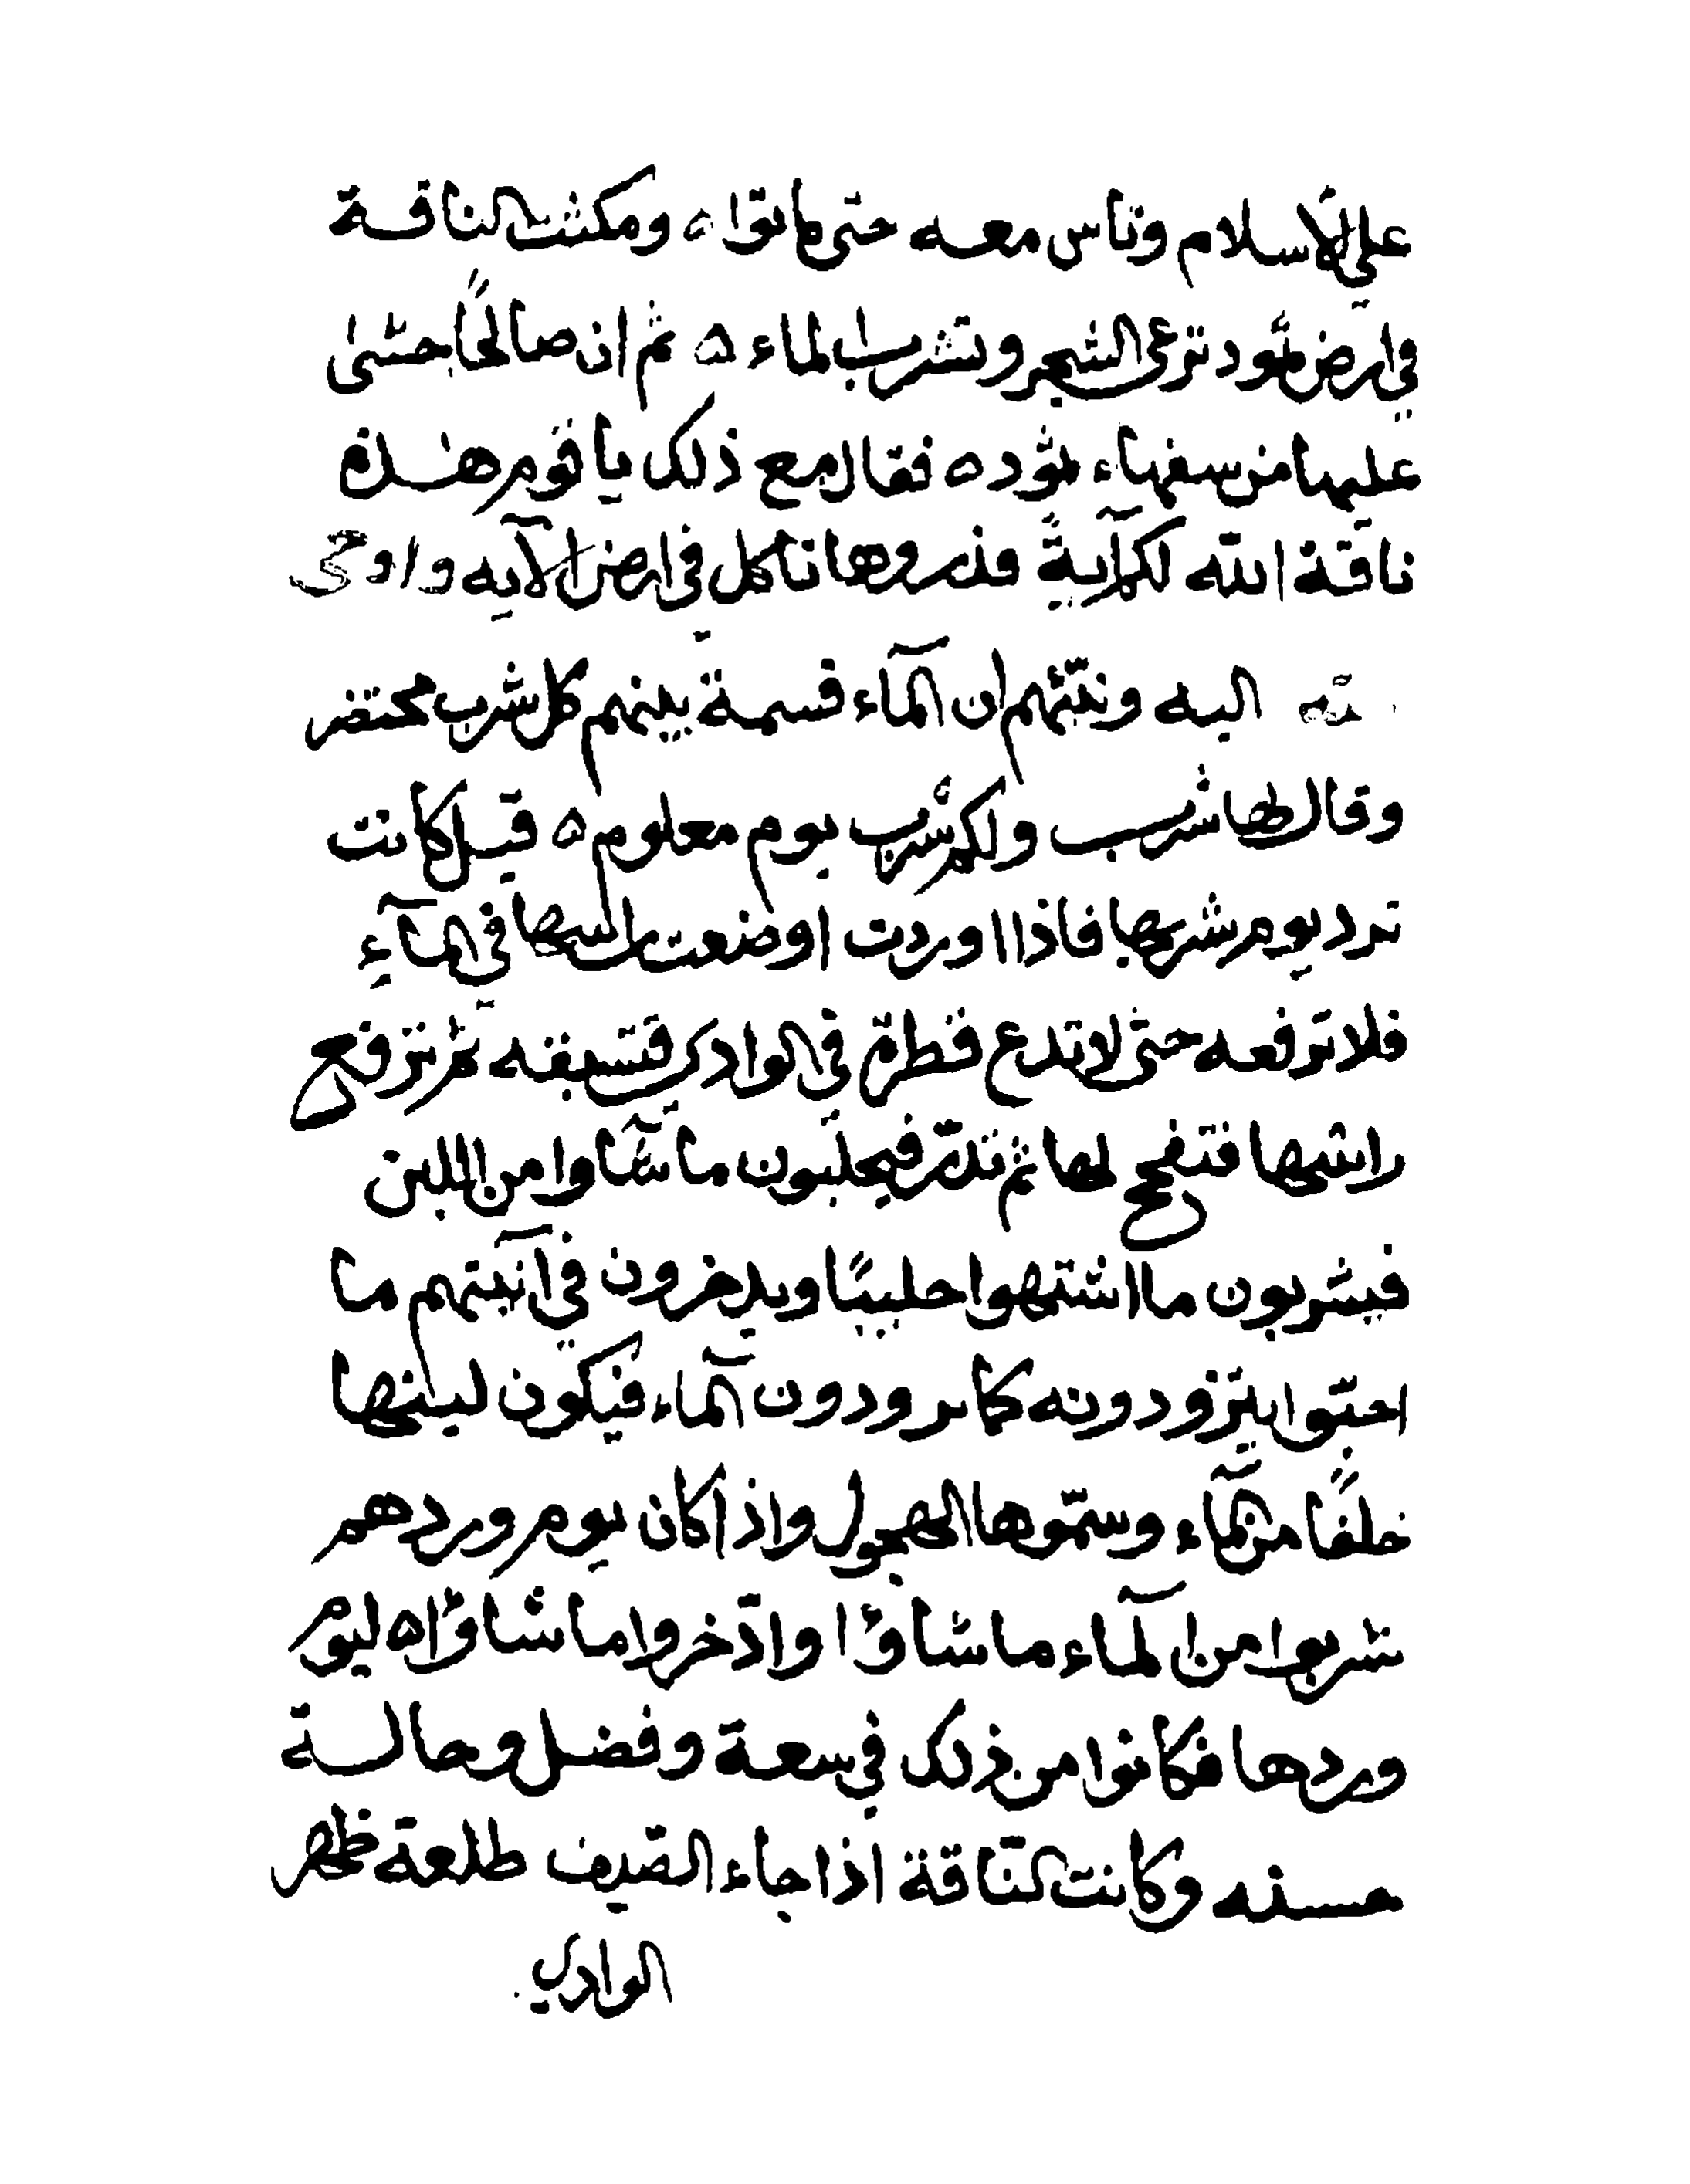 على الاسلام وناس معه حتى ماتوا ه ومكثت الناقة
في ارض ثمود ترعى الشجر وتشرب الماء ه ثم ان صالحًا خشى
عليها من سفهاء ثمود ه فقال مع ذلك يا قوم هذه
ناقة الله لكم آيةً فذروها تاكل في ارض الآيه واوحى
اليه ونبئهم ان المآء قسمة بينهم كل شرب محتضر
وقال لها شرب ولكم شرب يوم معلوم ه قيل كانت
ترد يوم شربها فاذا اوردت اوضعت راسها في المآء
فلا ترفعه حتى لا تدع قطرة في الوادي فتسبقه ثم ترفع
راسها فتفحج لها ثم تدرّ فيحلبون ما شآوا من اللبن
فيشربون ما اشتهوا حليبًا ويدخرون في آنيتهم ما
احبّوا يتزودونه كما يرودون المآء فيكون لبنها
خلفًا من المآء وسمّوها الهجول واذا كان يوم وردهم
شربوا من المآء ما شاؤا وادّخروا ما شاؤا ه ليوم
وردها فكانوا من ذلك في سعة وفضل وحالة
حسنه وكانت النّاقة اذا جاء الصّيف طلعة ظهر
الوادي